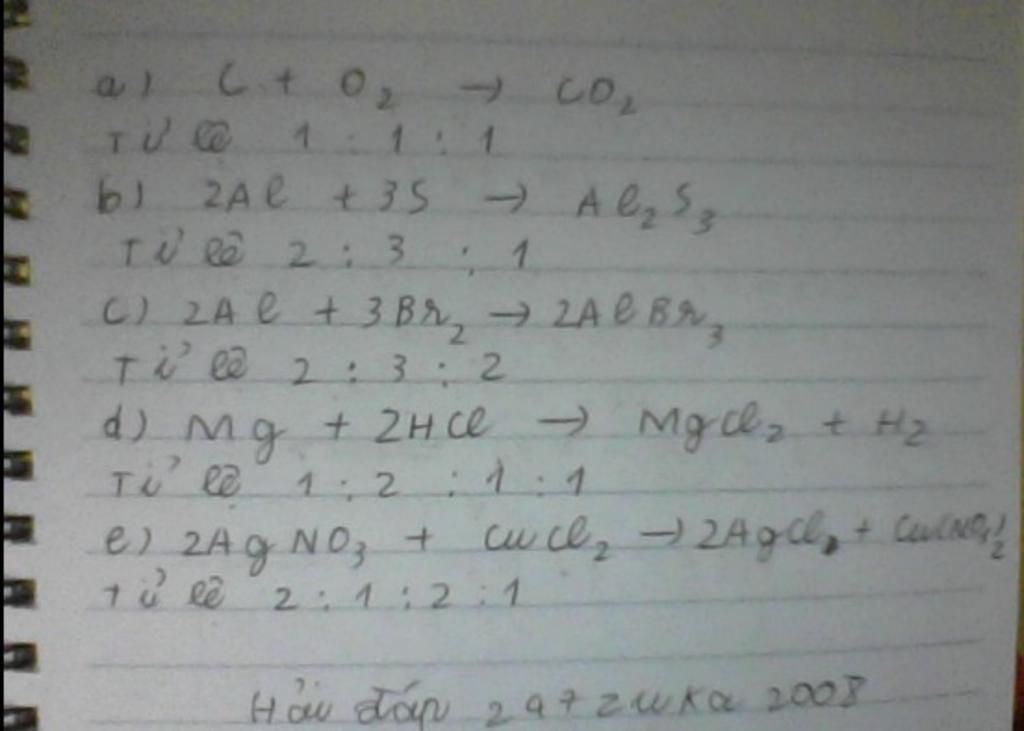 a) C + O₂ → CO₂
Tỉ lệ 1 : 1 : 1
b) 2Al + 3S → Al₂S₃
Tỉ lệ 2 : 3 : 1
c) 2Al + 3Br₂ → 2AlBr₃
Tỉ lệ 2 : 3 : 2
d) Mg + 2HCl → MgCl₂ + H₂
Tỉ lệ 1 : 2 : 1 : 1
e) 2AgNO₃ + CuCl₂ → 2AgCl + Cu(NO₃)₂
Tỉ lệ 2 : 1 : 2 : 1
Hỏi đáp 247 zuka 2008